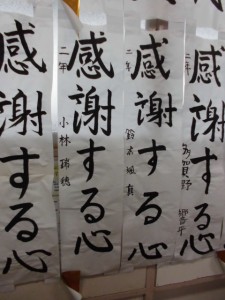 感謝する心
二年
小林 瑞穂
感謝する心
二年
鈴木 颯真
感謝する心
二年
多賀野
感謝する心